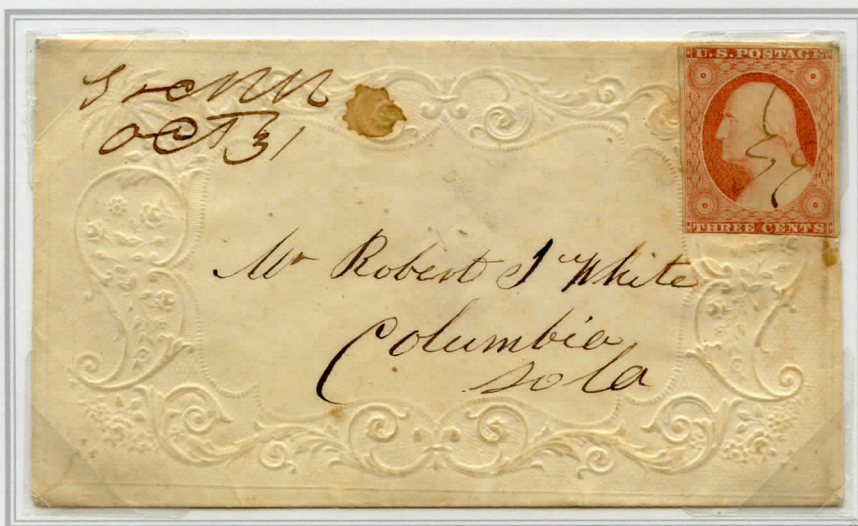 OCT 31
U.S. POSTAGE
THREE CENTS
Mr Robert J White
Columbia
So Ca